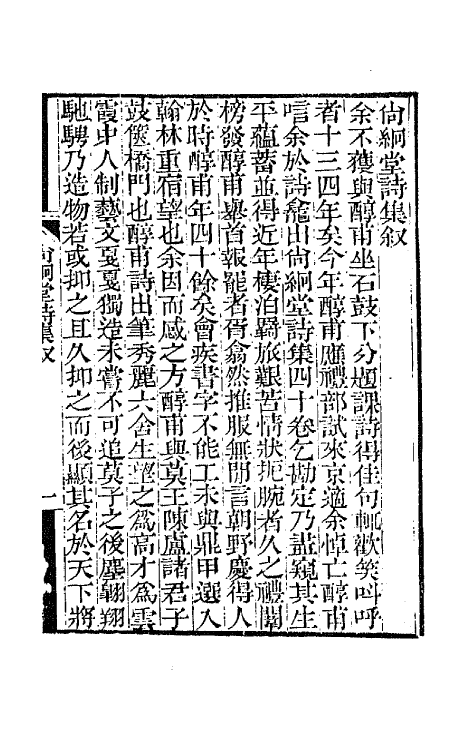 尙絅堂詩集叙
余不獲與醇甫坐石鼓下分題課詩得佳句輒歡笑叫呼
者十三四年矣今年醇甫應禮部試來京適余悼亡醇甫
唁余於詩龕出尙絅堂詩集四十卷乞勘定乃盡窺其生
平蘊蓄並得近年棲泊羇旅艱苦情狀扼腕者久之禮闈
榜發醇甫舉首報罷者胥翕然推服無閒言朝野慶得人
於時醇甫年四十餘矣會疾書字不能工未與鼎甲選入
翰林重宿望也余因而感之方醇甫與莫王陳盧諸君子
鼓篋橋門也醇甫詩出筆秀麗六舍生望之爲高才爲雲
霞中人制藝文戞戞獨造未嘗不可追莫子之後塵翺翔
馳騁乃造物若或抑之且久抑之而後顯其名於天下將
尙絅堂詩集叙
一